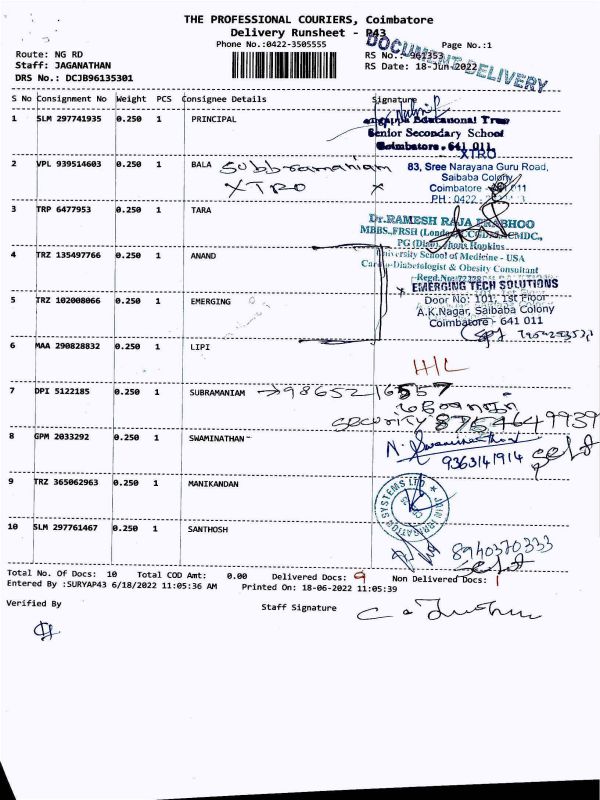 THE PROFESSIONAL COURIERS, Coimbatore
Delivery Runsheet - P43
Phone No.:0422-3505555
Page No.:1
DOCUMENT DELIVERY
Route: NG RD
RS No.: 961353
Staff: JAGANATHAN
RS Date: 18-Jun-2022
DRS No.: DCJB96135301
S No Consignment No Weight PCS Consignee Details Signature
1 SLM 297741935 0.250 1 PRINCIPAL
Educational Trust
Senior Secondary School
Coimbatore - 641 011
XTRO
2 VPL 939514603 0.250 1 BALA Subbramaniam
XTRO x
83, Sree Narayana Guru Road,
Saibaba Colony
Coimbatore - 011
PH : 0422 -
3 TRP 6477953 0.250 1 TARA
Dr.RAMESH RAJA PRABHOO
MBBS.,FRSH (London),
PG (Dip), Johns Hopkins
4 TRZ 135497766 0.250 1 ANAND
University School of Medicine - USA
Cardio-Diabetologist & Obesity Consultant
5 TRZ 102008066 0.250 1 EMERGING
x EMERGING TECH SOLUTIONS
Door No: 101, 1st Floor
A.K.Nagar, Saibaba Colony
Coimbatore - 641 011
6 MAA 290828832 0.250 1 LIPI
H/L
7 DPI 5122185 0.250 1 SUBRAMANIAM → 9865216557
security 8754649939
8 GPM 2033292 0.250 1 SWAMINATHAN
N. Swaminathan
9363141914 self
9 TRZ 365062963 0.250 1 MANIKANDAN
JAIN IRRIGATION SYSTEMS LTD
10 SLM 297761467 0.250 1 SANTHOSH
8940370333
self
Total No. Of Docs: 10 Total COD Amt: 0.00 Delivered Docs: 9 Non Delivered Docs: 1
Entered By :SURYAP43 6/18/2022 11:05:36 AM Printed On: 18-06-2022 11:05:39
Verified By Staff Signature